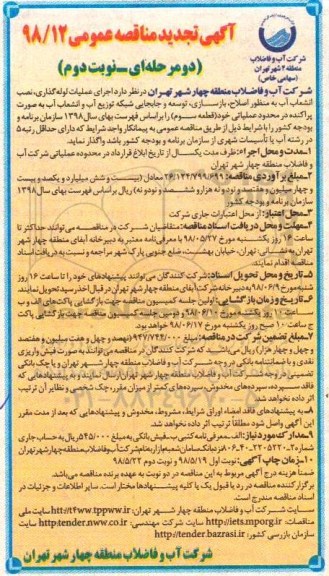 آگهی تجدید مناقصه عمومی ۹۸/۱۲
(دو مرحله‌ای - نوبت دوم)
شرکت آب و فاضلاب
منطقه ۴ شهر تهران
(سهامی خاص)
شرکت آب و فاضلاب منطقه چهار شهر تهران در نظر دارد اجرای عملیات لوله‌گذاری، نصب
انشعاب آب به منظور اصلاح، بازسازی، توسعه و جابجایی شبکه توزیع آب و انشعاب آب به صورت
پراکنده در محدوده عملیاتی خود (قطعه سوم) را بر اساس فهرست بهای سال ۱۳۹۸ سازمان برنامه و
بودجه کشور را با شرایط ذیل از طریق مناقصه عمومی به پیمانکار واجد شرایط که دارای حداقل رتبه ۵
در رشته آب یا تأسیسات شهری از سازمان برنامه و بودجه کشور باشد واگذار نماید.
۱-مدت و محل اجراء: ظرف مدت یکسال از تاریخ ابلاغ قرارداد در محدوده عملیاتی شرکت آب
و فاضلاب منطقه چهار شهر تهران
۲-مبلغ برآوردی مناقصه: ۲۶/۱۲۴/۷۹۹/۶۹۹ معادل (بیست و شش میلیارد و یکصد و بیست
و چهار میلیون و هفتصد و نود و نه هزار و ششصد و نود و نه) ریال بر اساس فهرست بهای سال ۱۳۹۸
سازمان برنامه و بودجه کشور
۳-محل اعتبار: از محل اعتبارات جاری شرکت
۴-مهلت و محل دریافت اسناد مناقصه: متقاضیان شرکت در مناقصه می‌توانند حداکثر تا
ساعت ۱۶ روز یکشنبه مورخ ۹۸/۰۵/۲۷ با معرفی‌نامه معتبر به دبیرخانه آبفای منطقه چهار شهر
تهران به نشانی: تهران، خیابان بهشت، ضلع جنوبی پارک شهر مراجعه و نسبت به دریافت اسناد
مناقصه اقدام نمایند.
۵-تاریخ و محل تحویل اسناد: شرکت کنندگان می‌توانند پیشنهادهای خود را تا ساعت ۱۶ روز
شنبه مورخ ۹۸/۰۶/۹ به دبیرخانه شرکت آبفای منطقه چهار شهر تهران در قبال اخذ رسید تحویل نمایند.
۶-تاریخ و زمان بازگشایی: اولین جلسه کمیسیون مناقصه جهت بازگشایی پاکت‌های الف و ب
ساعت ۱۰ روز یکشنبه مورخ ۹۸/۰۶/۱۰ و دومین جلسه کمیسیون مناقصه جهت بازگشایی پاکت
ج ساعت ۱۰ صبح روز یکشنبه مورخ ۹۸/۰۶/۱۷ خواهد بود.
۷-مبلغ تضمین شرکت در مناقصه: مبلغ ۹۴۷/۷۴۴/۰۰۰ (نهصد و چهل و هفت میلیون و هفتصد
و چهل و چهار هزار) ریال می‌باشد که شرکت کنندگان در مناقصه می‌توانند به صورت فیش واریزی
نقدی و یا ضمانتنامه بانکی در وجه شرکت آب و فاضلاب منطقه چهار شهر تهران و یا چک بانکی
تضمینی در وجه شرکت آب و فاضلاب منطقه چهار شهر تهران ارسال نمایند و به پیشنهادهایی که
فاقد سپرده، سپرده‌های مخدوش، سپرده‌های کمتر از میزان مقرر، چک شخصی و نظایر آن ترتیب
اثر داده نخواهد شد.
۸-به پیشنهادهای فاقد امضاء، اوراق شرایط، مشروط، مخدوش و پیشنهادهایی که بعد از مدت مقرر
این آگهی واصل شود مطلقاً ترتیب اثر داده نخواهد شد.
۹-مدارک مورد نیاز: الف-معرفی‌نامه کتبی ب-فیش بانکی به مبلغ ۵۴۵/۰۰۰ ریال به حساب جاری
۱۰-زمان چاپ آگهی: نوبت اول ۹۸/۵/۱۹ و نوبت دوم ۹۸/۵/۲۲
ضمناً هزینه درج آگهی مربوط به این مناقصه در دو نوبت به عهده برنده مناقصه می‌باشد.
برگزار کننده مناقصه در رد یا قبول یک یا کلیه پیشنهادها مختار است. سایر اطلاعات و جزئیات در
اسناد مناقصه مندرج است.
سایت شرکت آب و فاضلاب منطقه چهار شهر تهران: http://t4ww.tppww.ir سایت ملی
مناقصات: http://iets.mporg.ir سایت شرکت مهندسی: http://tender.nww.co.ir سایت
سازمان بازرسی کشور: http://tender.bazrasi.ir
شرکت آب و فاضلاب منطقه چهار شهر تهران